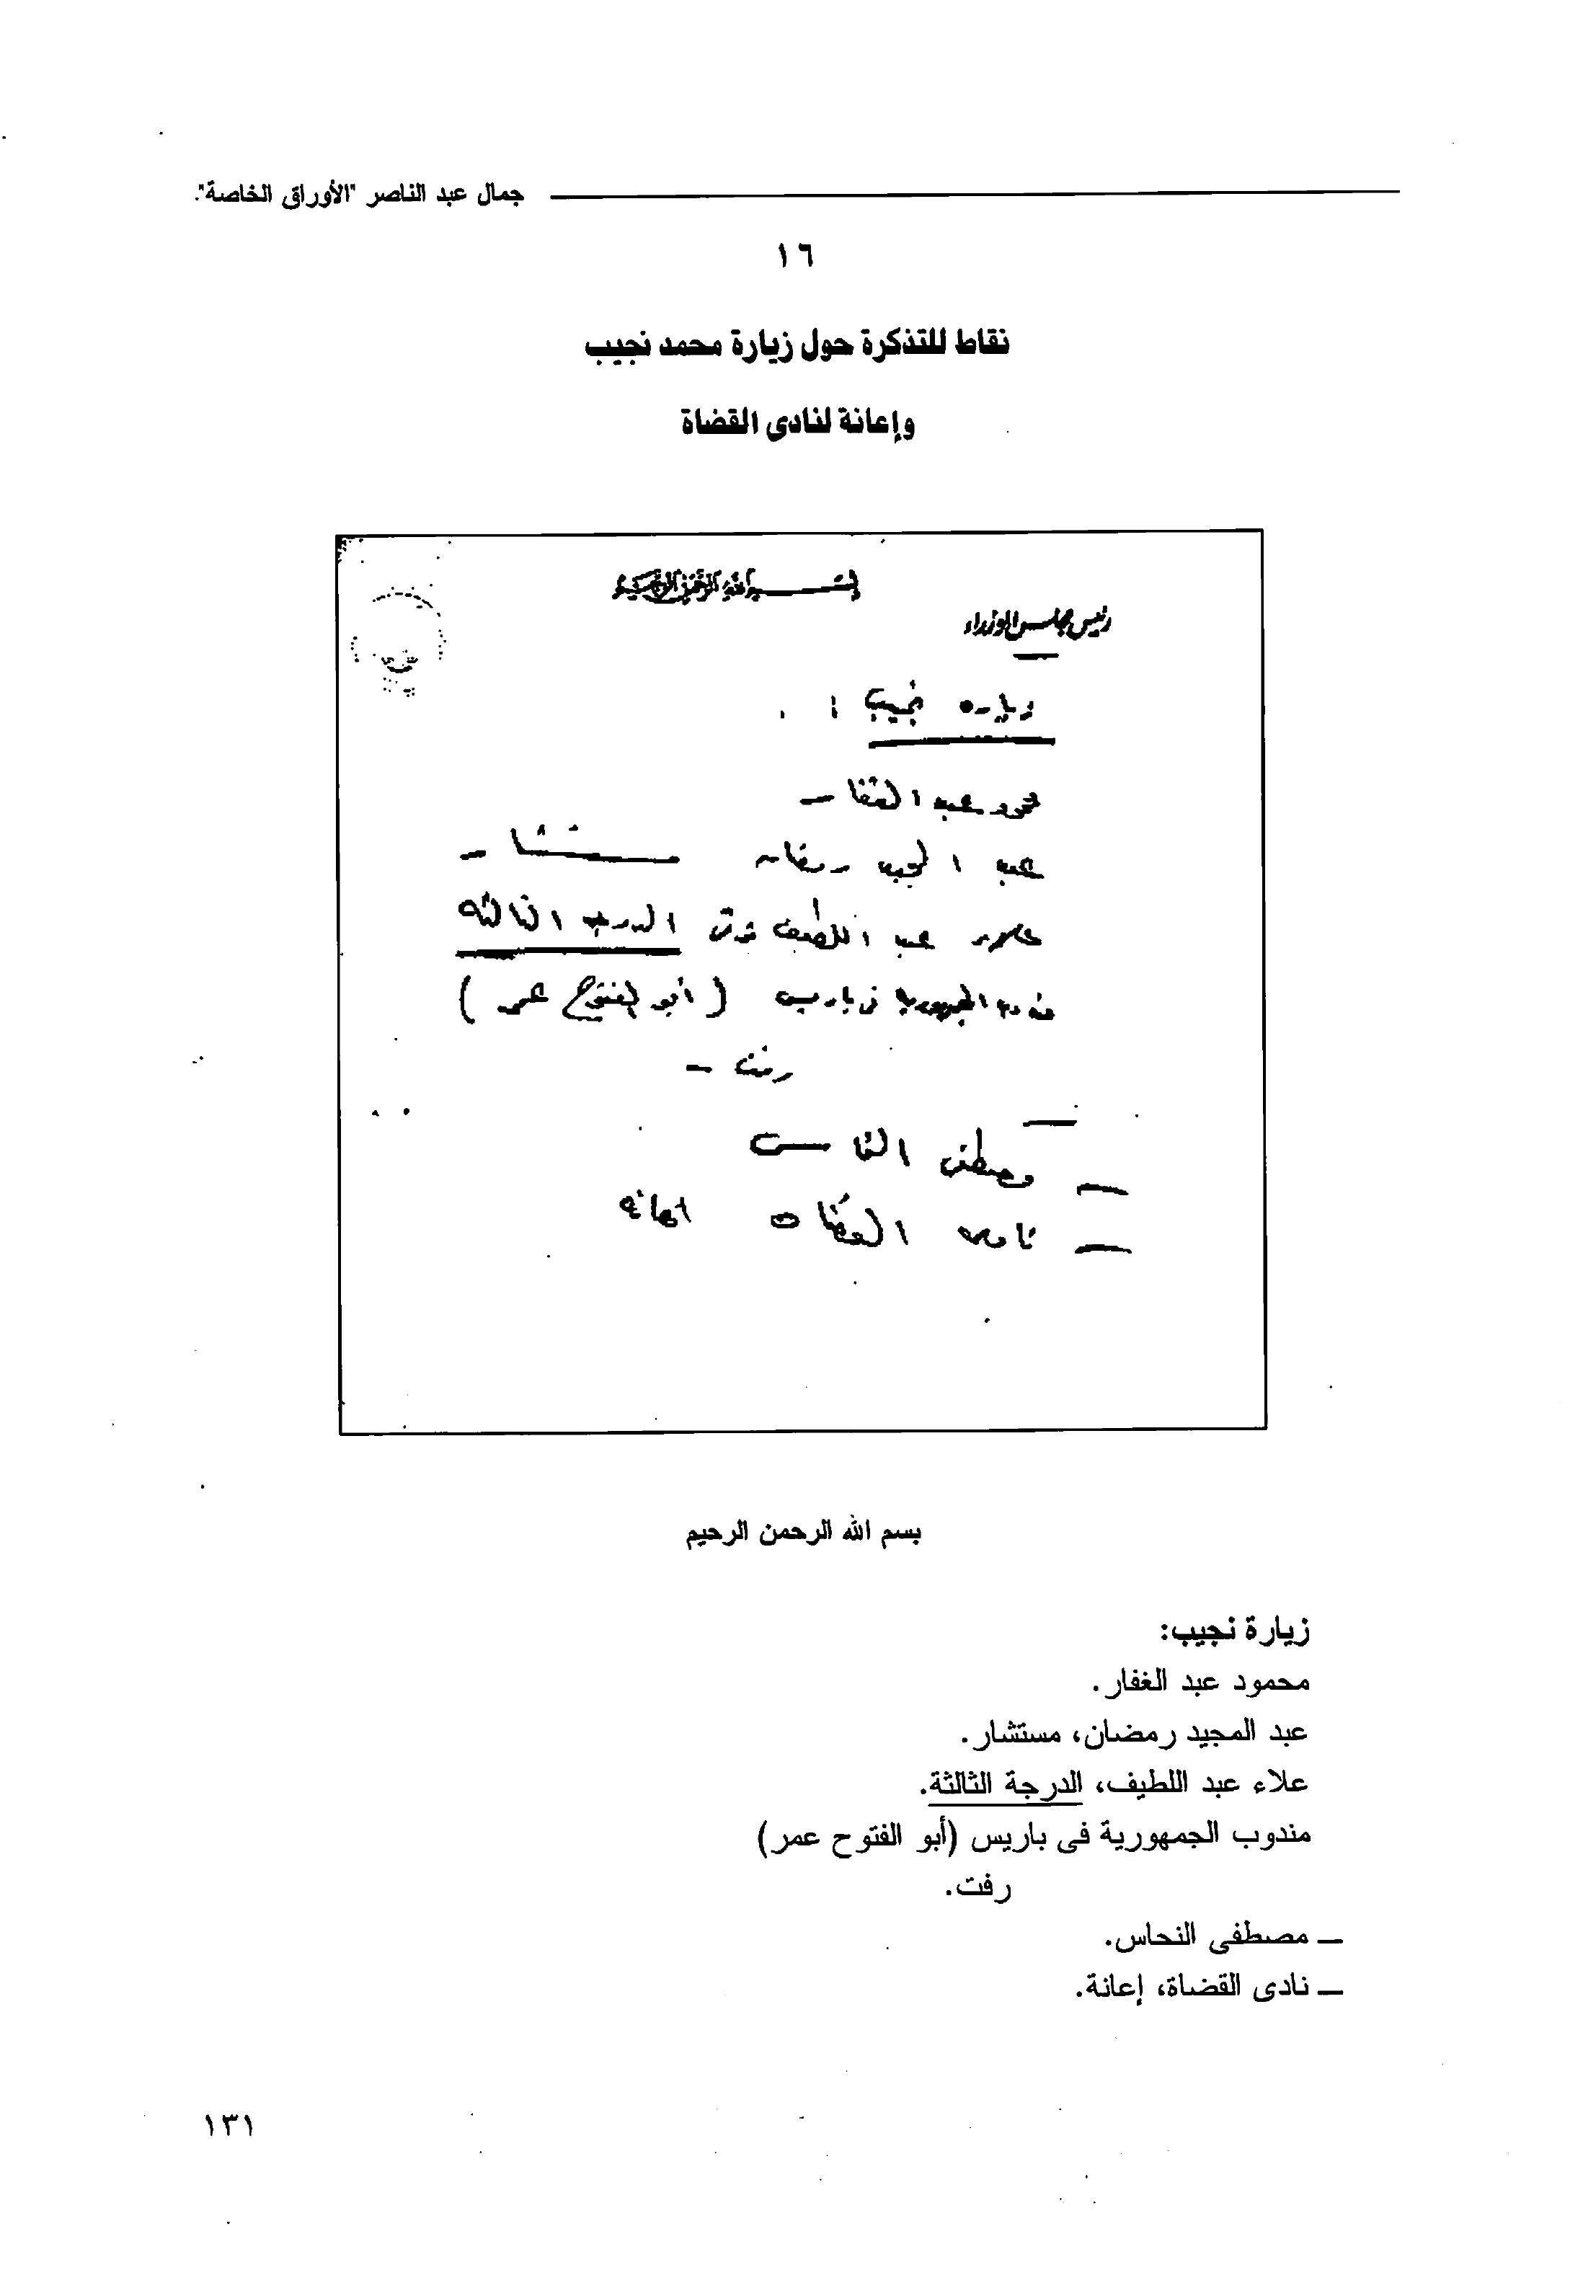 جمال عبد الناصر "الأوراق الخاصة".
١٦
نقاط للتذكرة حول زيارة محمد نجيب
وإعانة لنادى القضاة
بسم الله الرحمن الرحيم
رئيس مجلس الوزراء
زياره نجيب :
محمود عبد الغفار
عبد المجيد رمضان مستشار
علاء عبد اللطيف الدرجه الثالثه
مندوب الجمهورية فى باريس (أبو الفتوح عمر)
رفت -
— مصطفى النحاس
— نادى القضاة اعانة
بسم الله الرحمن الرحيم
زيارة نجيب:
محمود عبد الغفار.
عبد المجيد رمضان، مستشار.
علاء عبد اللطيف، الدرجة الثالثة.
مندوب الجمهورية فى باريس (أبو الفتوح عمر)
رفت.
— مصطفى النحاس.
— نادى القضاة، إعانة.
١٣١